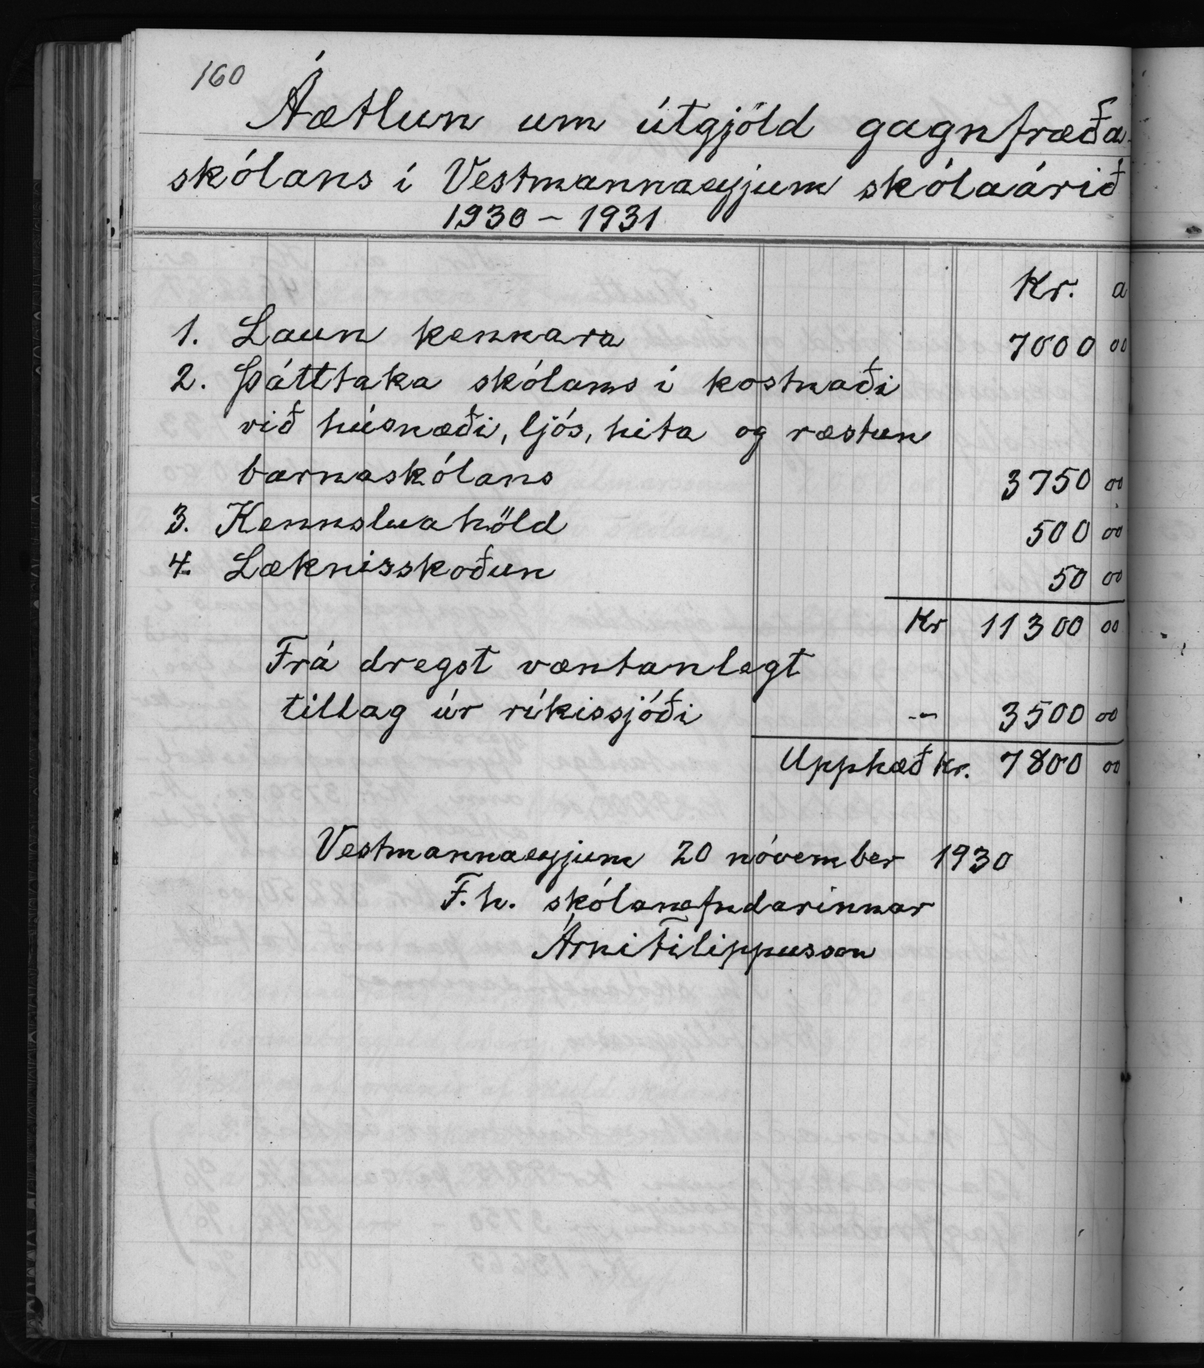 160
Áætlun um útgjöld gagnfræða
skólans í Vestmannaeyjum skólaárið
1930 – 1931
Kr. a
1. Laun kennara 7000 00
2. Þátttaka skólans í kostnaði
við húsnæði, ljós, hita og ræstun
barnaskólans 3750 00
3. Kennsluahöld 500 00
4. Læknisskoðun 50 00
Kr 11300 00
Frá dregst væntanlegt
tillag úr ríkissjóði – 3500 00
Upphæð kr. 7800 00
Vestmannaeyjum 20 nóvember 1930
F.h. skólanefndarinnar
Árni Filippusson